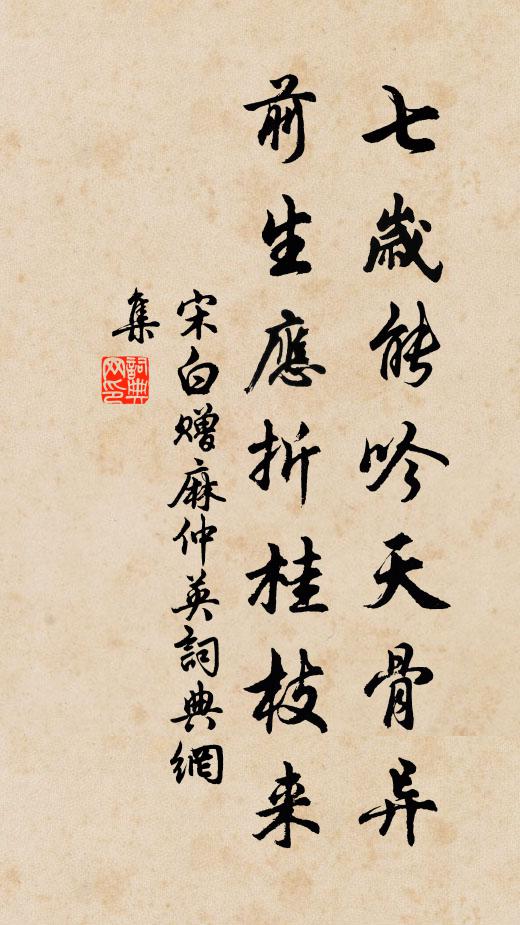 七歳能吟天骨异
前生應折桂枝来
宋白贈麻仲英詞典網
集
詞典網印